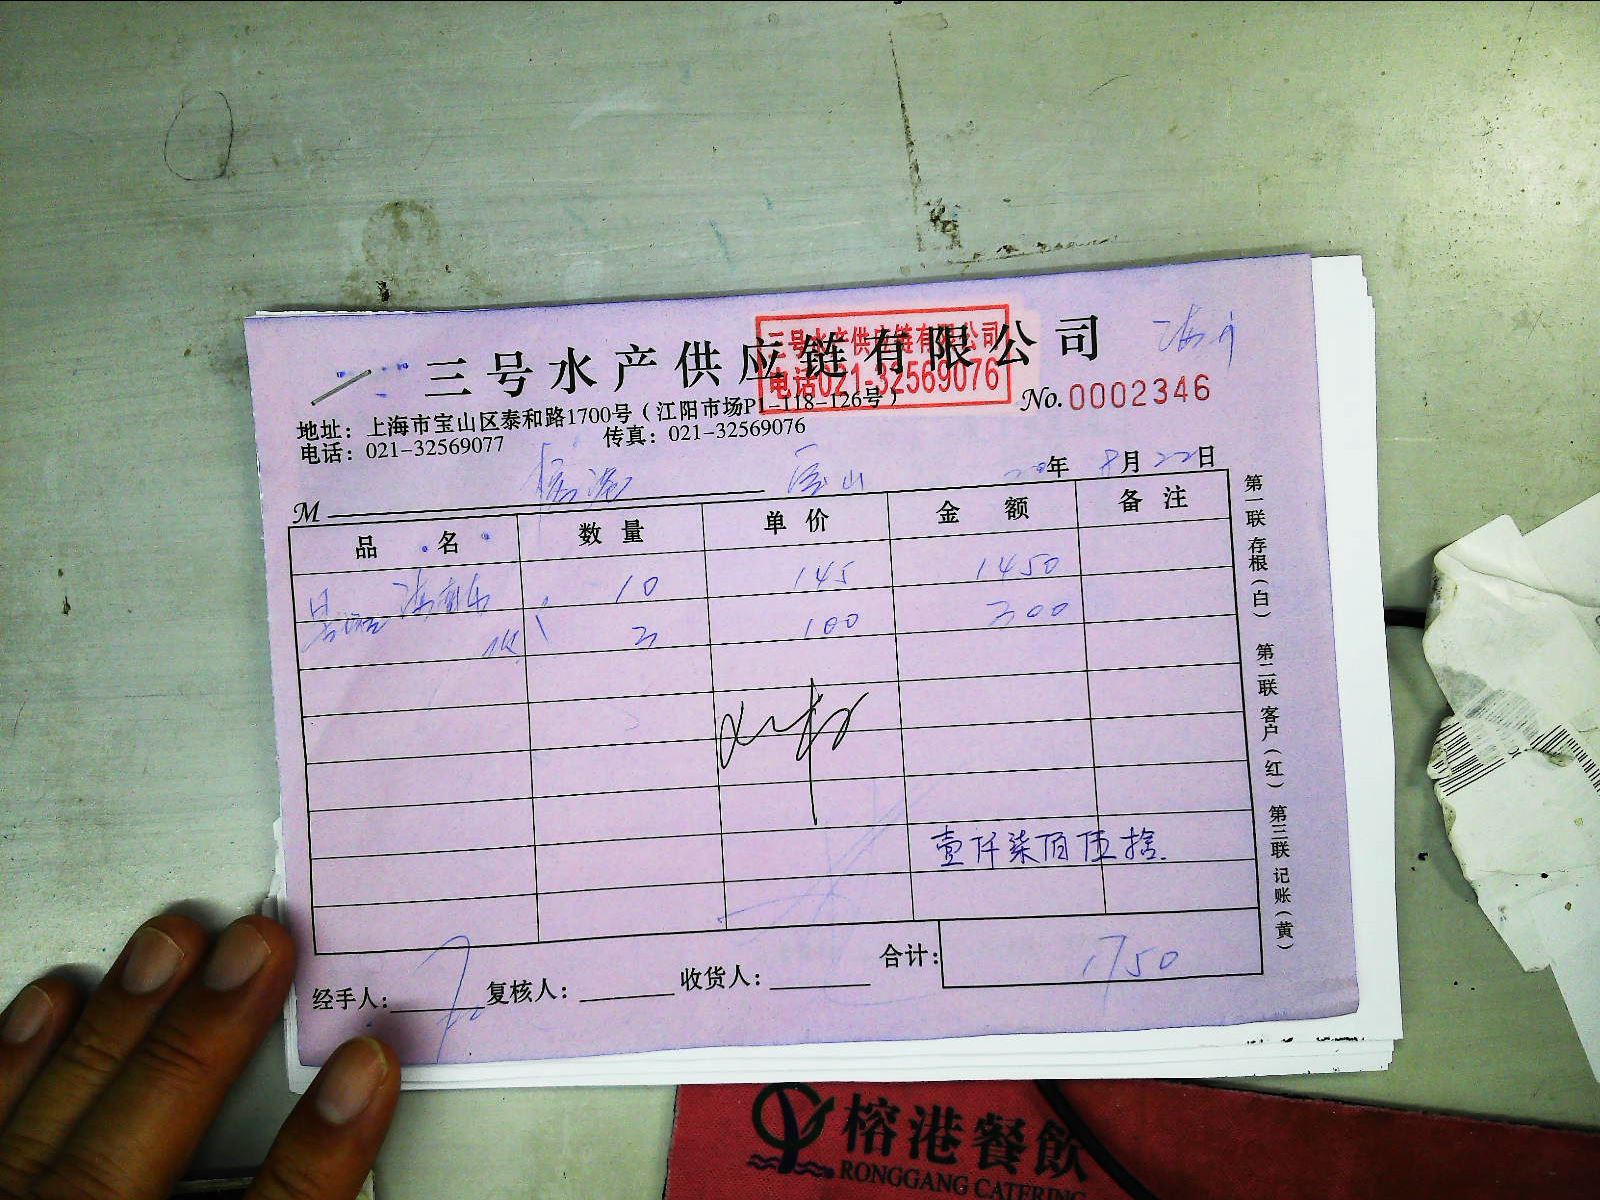 三号水产供应链有限公司
三号水产供应链有限公司
电话021-32569076
No.0002346
地址：上海市宝山区泰和路1700号（江阳市场P1-118-126号）
电话：021-32569077 传真：021-32569076
M 榕港 宝山 年 8月22日
品名 数量 单价 金额 备注
10 145 1450
3 100 300
壹仟柒佰伍拾
合计：1750
经手人： 复核人： 收货人：
第一联 存根（白） 第二联 客户（红） 第三联 记账（黄）
榕港餐飲
RONGGANG CATERING